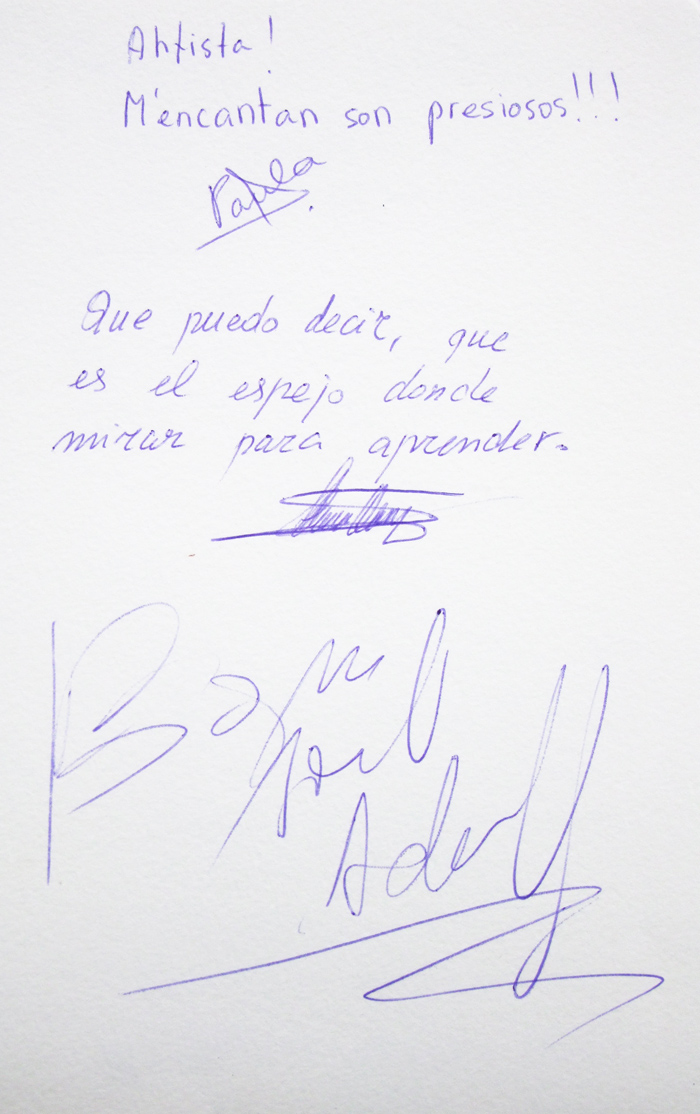 Ahtista!
M'encantan son presiosos!!!
Paula
Que puedo decir, que
es el espejo donde
mirar para aprender.